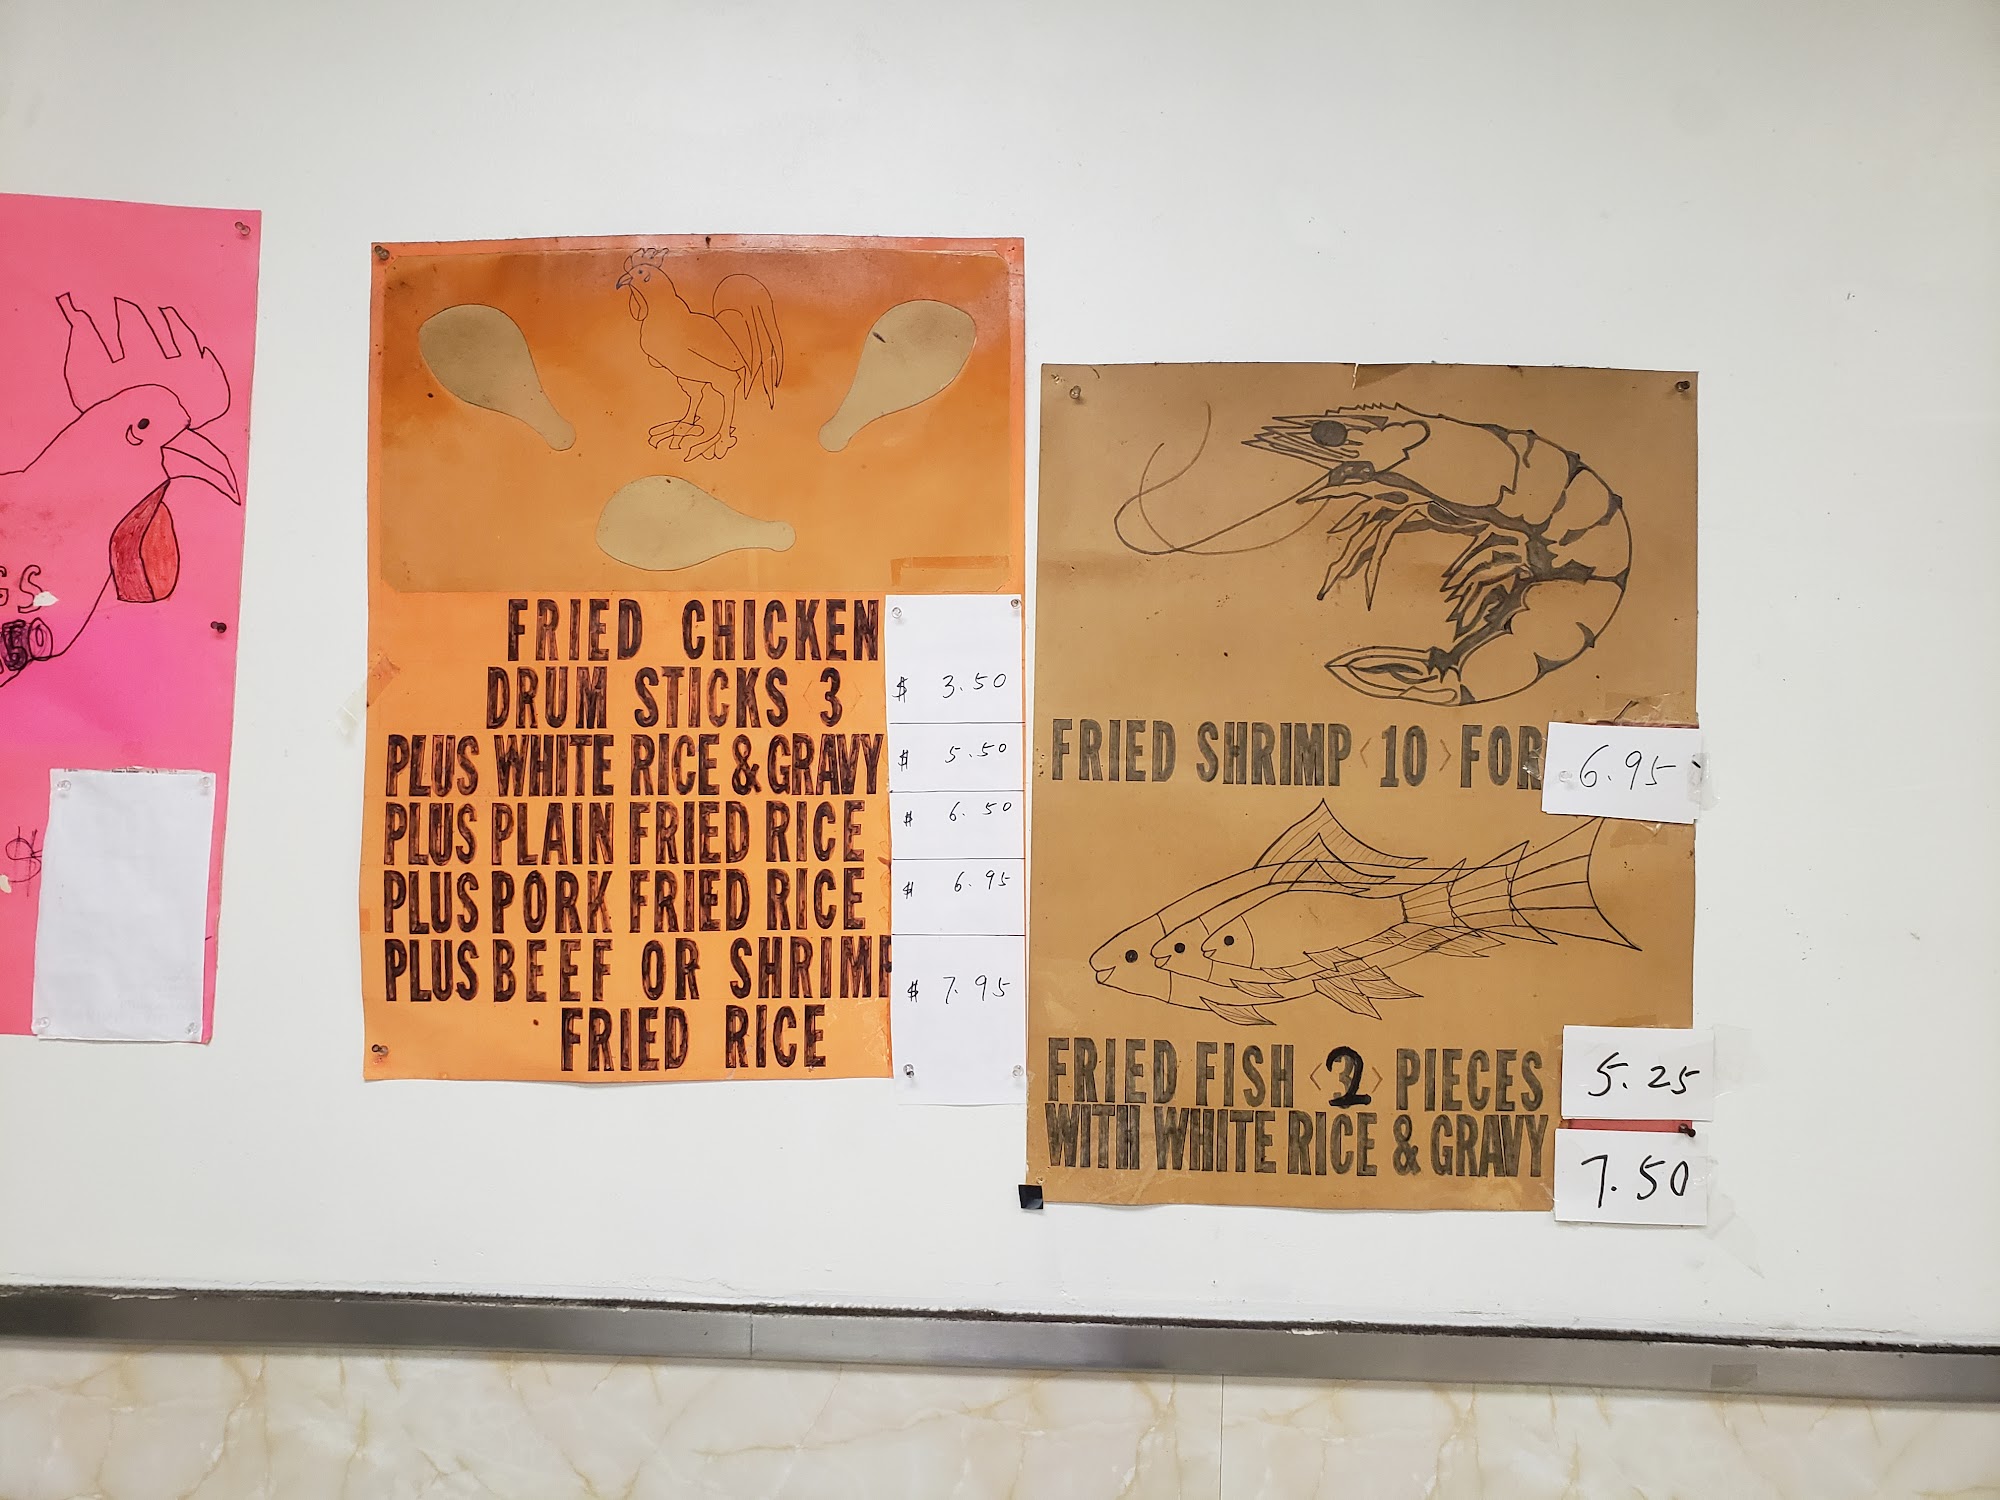 GS
$
FRIED CHICKEN
DRUM STICKS <3> $ 3.50
PLUS WHITE RICE & GRAVY $ 5.50
PLUS PLAIN FRIED RICE $ 6.50
PLUS PORK FRIED RICE $ 6.95
PLUS BEEF OR SHRIMP $ 7.95
FRIED RICE
FRIED SHRIMP <10> FOR 6.95
FRIED FISH <2> PIECES 5.25
WITH WHITE RICE & GRAVY 7.50